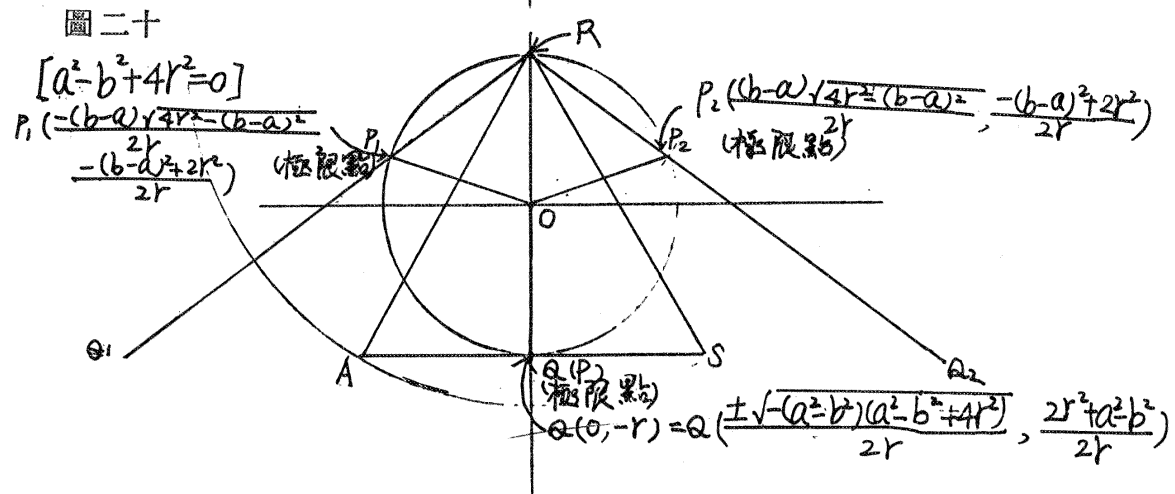 圖二十
[a²-b²+4r²=0]
P₁(\frac{-(b-a)\sqrt{4r²-(b-a)²}}{2r}, \frac{-(b-a)²+2r²}{2r})
P₁
(極限點)
R
P₂(\frac{(b-a)\sqrt{4r²-(b-a)²}}{2r}, \frac{-(b-a)²+2r²}{2r})
P₂
(極限點)
O
Q₁
A
S
Q₂
Q(P)
(極限點)
Q(0,-r)=Q(\frac{±\sqrt{-(a²-b²)(a²-b²+4r²)}}{2r}, \frac{2r²+a²-b²}{2r})